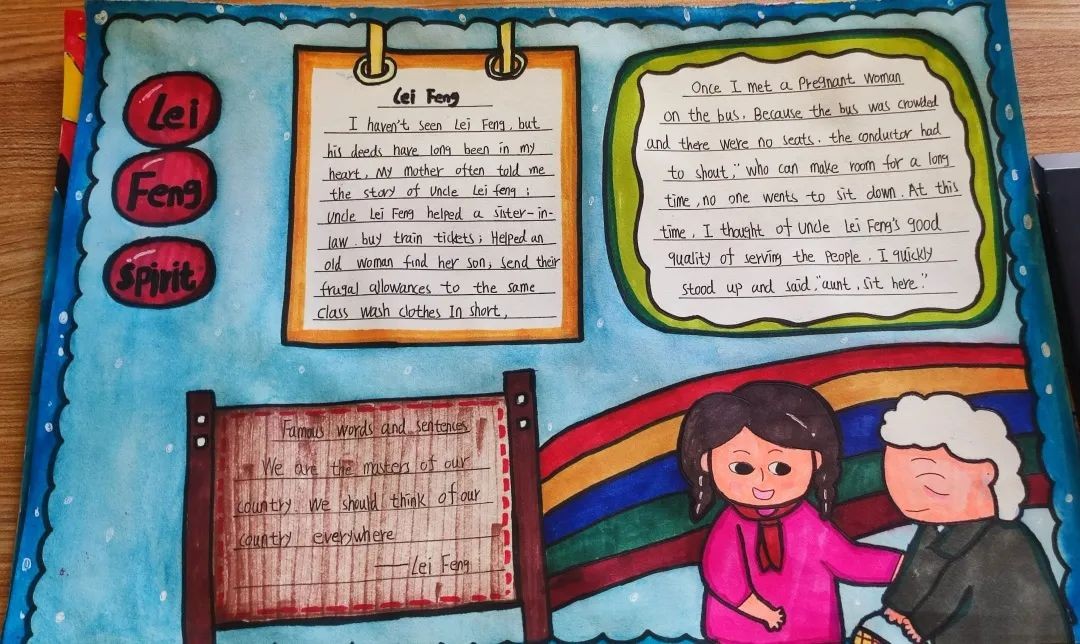 Lei
Feng
Spirit
Lei Feng
I haven't seen Lei Feng, but
his deeds have long been in my
heart, My mother often told me
the story of Uncle Lei feng:
Uncle Lei Feng helped a sister-in-
law buy train tickets; Helped an
old woman find her son; send their
frugal allowances to the same
class wash clothes In short,
Once I met a Pregnant Woman
on the bus. Because the bus was crowded
and there were no seats. the conductor had
to shout; "who can make room for a long
time, no one wents to sit down. At this
time, I thought of Uncle Lei Feng's good
quality of serving the people, I quickly
stood up and said, "aunt, sit here."
Famous words and sentences
We are the masters of our
country We should think of our
country everywhere
——Lei Feng